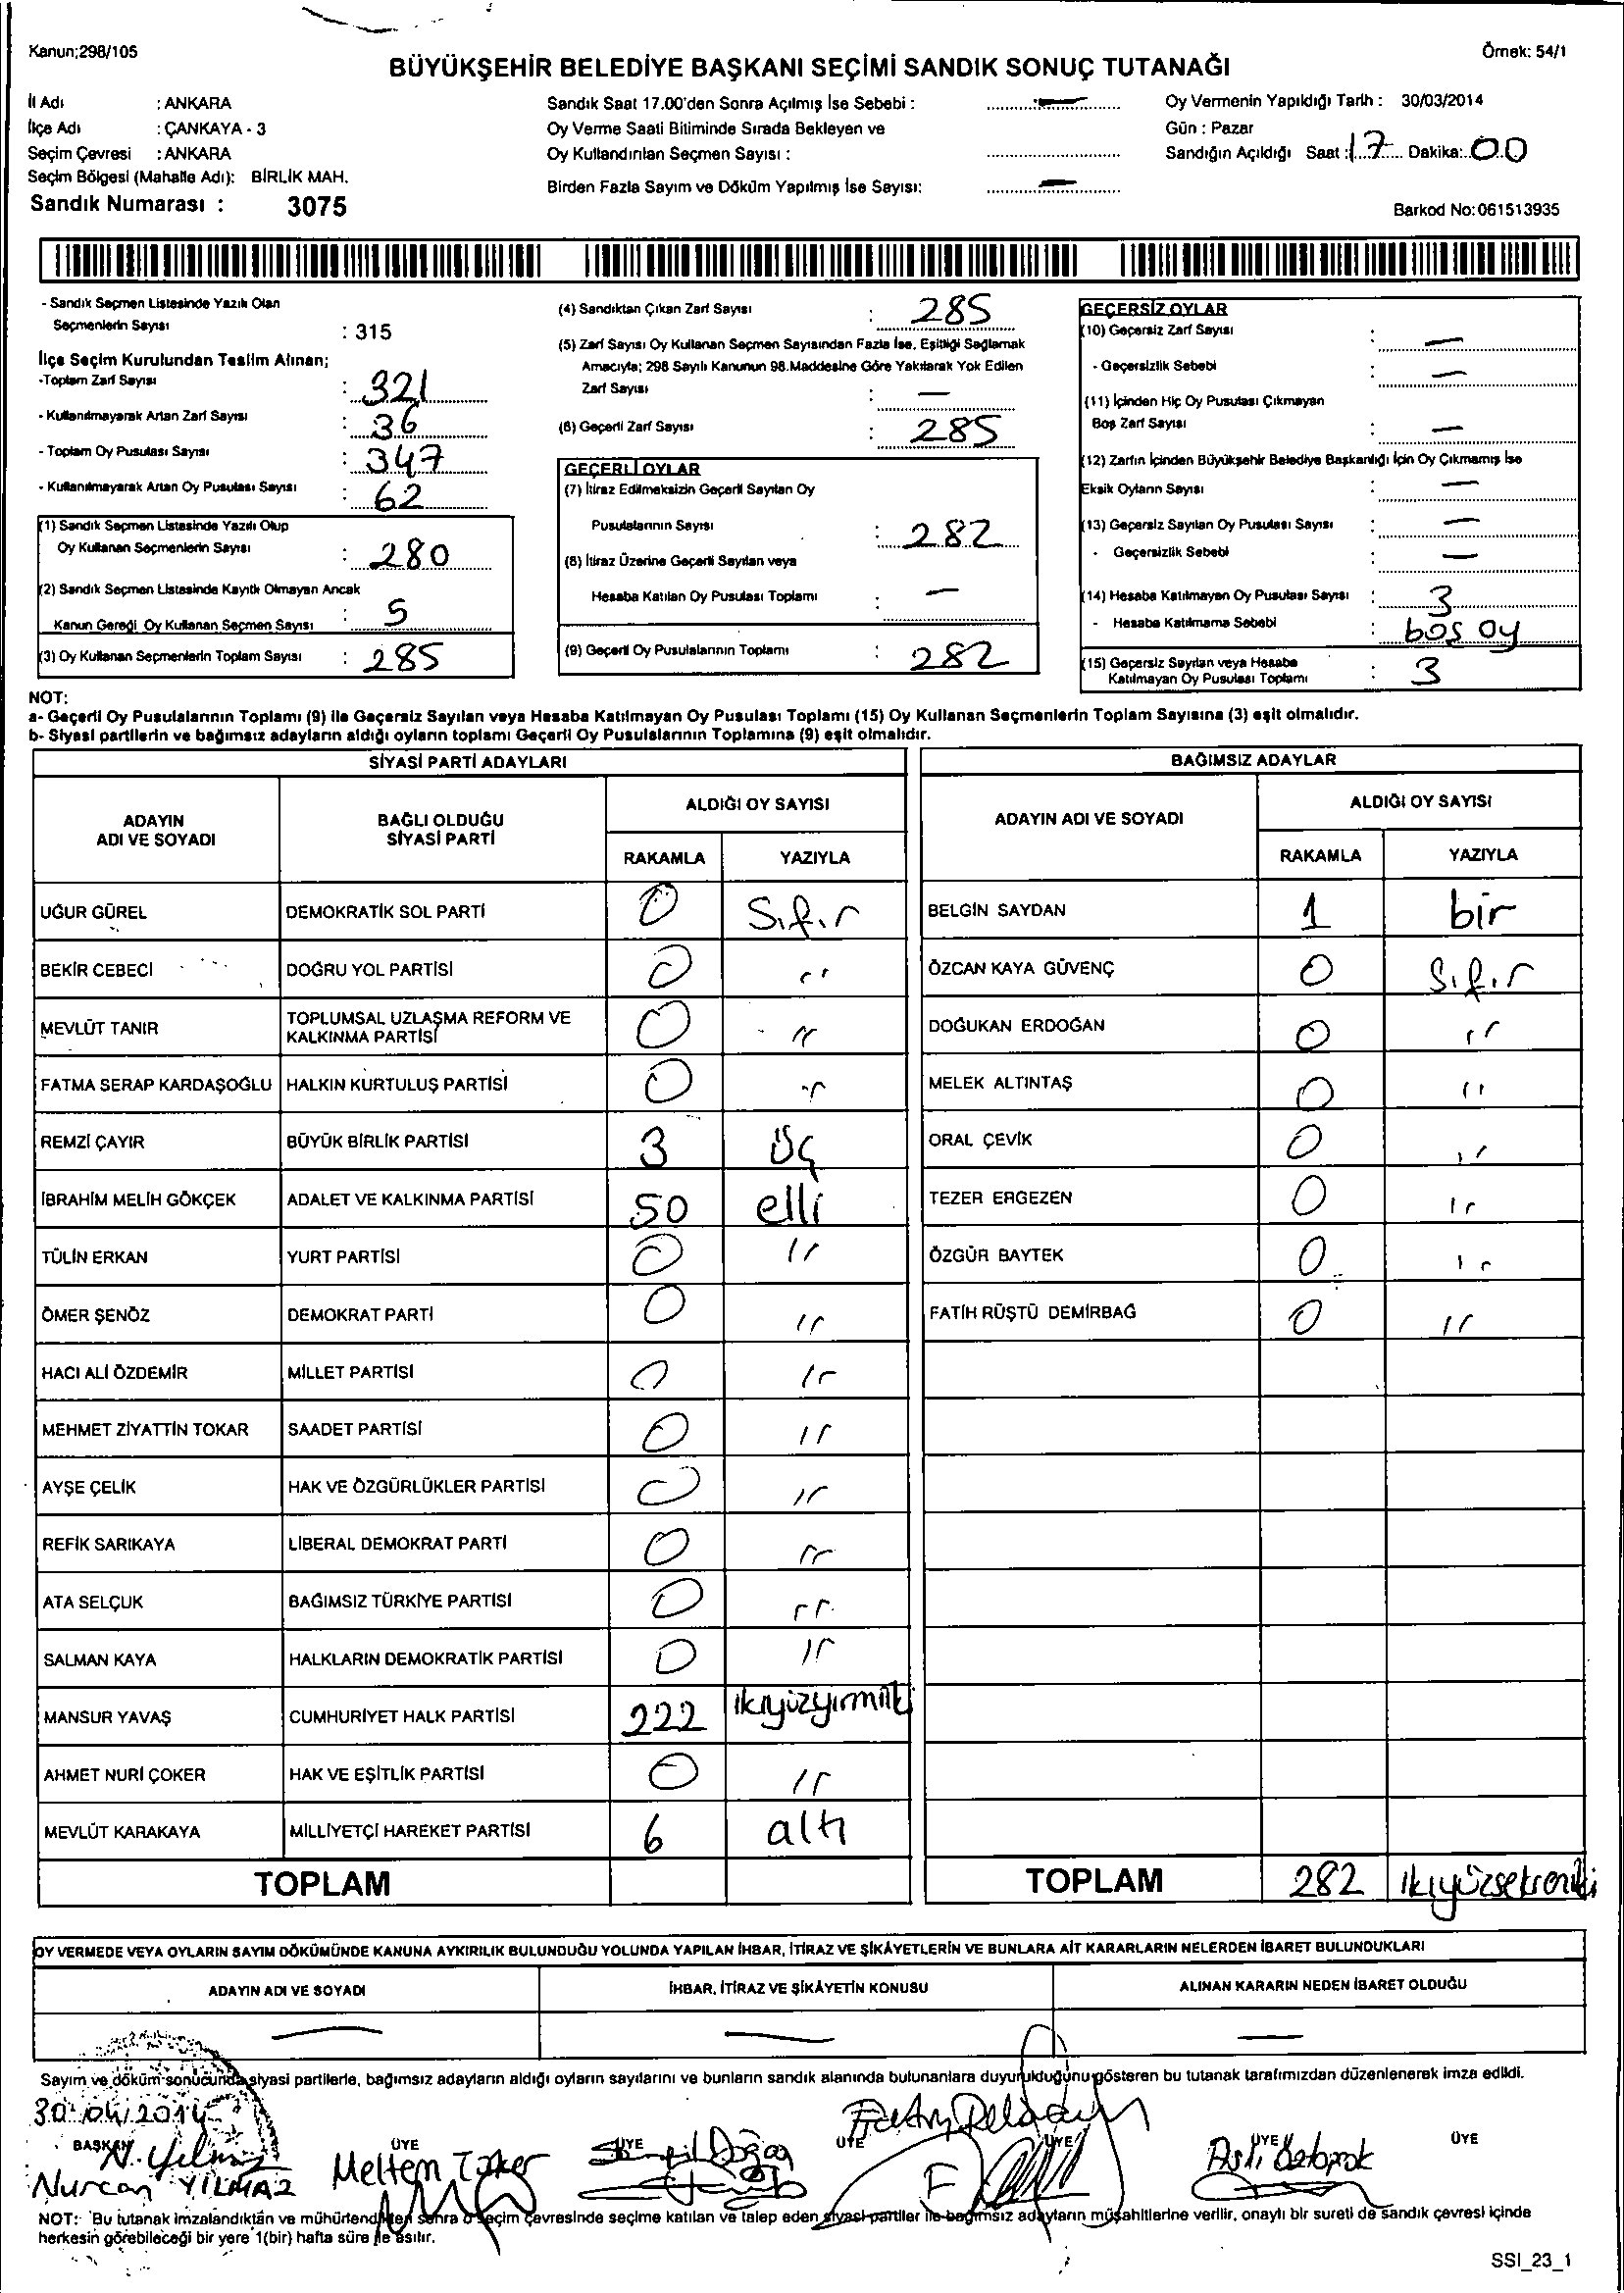 Kanun;298/105
Örnek: 54/1
BÜYÜKŞEHİR BELEDİYE BAŞKANI SEÇİMİ SANDIK SONUÇ TUTANAĞI
İl Adı : ANKARA
İlçe Adı : ÇANKAYA - 3
Seçim Çevresi : ANKARA
Seçim Bölgesi (Mahalle Adı): BİRLİK MAH.
Sandık Numarası : 3075
Sandık Saat 17.00'den Sonra Açılmış İse Sebebi : —
Oy Verme Saati Bitiminde Sırada Bekleyen ve
Oy Kullandırılan Seçmen Sayısı :
Birden Fazla Sayım ve Döküm Yapılmış İse Sayısı: —
Oy Vermenin Yapıldığı Tarih : 30/03/2014
Gün : Pazar
Sandığın Açıldığı Saat : 17 Dakika: 00
Barkod No:061513935
- Sandık Seçmen Listesinde Yazılı Olan
Seçmenlerin Sayısı : 315
İlçe Seçim Kurulundan Teslim Alınan;
-Toplam Zarf Sayısı : 321
- Kullanılmayarak Artan Zarf Sayısı : 36
- Toplam Oy Pusulası Sayısı : 347
- Kullanılmayarak Artan Oy Pusulası Sayısı : 62
(1) Sandık Seçmen Listesinde Yazılı Olup
Oy Kullanan Seçmenlerin Sayısı : 280
(2) Sandık Seçmen Listesinde Kayıtlı Olmayan Ancak
Kanun Gereği Oy Kullanan Seçmen Sayısı : 5
(3) Oy Kullanan Seçmenlerin Toplam Sayısı : 285
(4) Sandıktan Çıkan Zarf Sayısı : 285
(5) Zarf Sayısı Oy Kullanan Seçmen Sayısından Fazla İse, Eşitliği Sağlamak
Amacıyla; 298 Sayılı Kanunun 98.Maddesine Göre Yakılarak Yok Edilen
Zarf Sayısı : —
(6) Geçerli Zarf Sayısı : 285
GEÇERLİ OYLAR
(7) İtiraz Edilmeksizin Geçerli Sayılan Oy
Pusulalarının Sayısı : 282
(8) İtiraz Üzerine Geçerli Sayılan veya
Hesaba Katılan Oy Pusulası Toplamı : —
(9) Geçerli Oy Pusulalarının Toplamı : 282
GEÇERSİZ OYLAR
(10) Geçersiz Zarf Sayısı : —
- Geçersizlik Sebebi : —
(11) İçinden Hiç Oy Pusulası Çıkmayan
Boş Zarf Sayısı : —
(12) Zarfın İçinden Büyükşehir Belediye Başkanlığı İçin Oy Çıkmamış İse
Eksik Oyların Sayısı : —
(13) Geçersiz Sayılan Oy Pusulası Sayısı : —
- Geçersizlik Sebebi : —
(14) Hesaba Katılmayan Oy Pusulası Sayısı : 3
- Hesaba Katılmama Sebebi : boş oy
(15) Geçersiz Sayılan veya Hesaba
Katılmayan Oy Pusulası Toplamı : 3
NOT:
a- Geçerli Oy Pusulalarının Toplamı (9) ile Geçersiz Sayılan veya Hesaba Katılmayan Oy Pusulası Toplamı (15) Oy Kullanan Seçmenlerin Toplam Sayısına (3) eşit olmalıdır.
b- Siyasi partilerin ve bağımsız adayların aldığı oyların toplamı Geçerli Oy Pusulalarının Toplamına (9) eşit olmalıdır.
SİYASİ PARTİ ADAYLARI
ADAYIN ADI VE SOYADI BAĞLI OLDUĞU SİYASİ PARTİ ALDIĞI OY SAYISI
RAKAMLA YAZIYLA
UĞUR GÜREL DEMOKRATİK SOL PARTİ 0 Sıfır
BEKİR CEBECİ DOĞRU YOL PARTİSİ 0 "
MEVLÜT TANIR TOPLUMSAL UZLAŞMA REFORM VE KALKINMA PARTİSİ 0 "
FATMA SERAP KARDAŞOĞLU HALKIN KURTULUŞ PARTİSİ 0 "
REMZİ ÇAYIR BÜYÜK BİRLİK PARTİSİ 3 üç
İBRAHİM MELİH GÖKÇEK ADALET VE KALKINMA PARTİSİ 50 elli
TÜLİN ERKAN YURT PARTİSİ 0 "
ÖMER ŞENÖZ DEMOKRAT PARTİ 0 "
HACI ALİ ÖZDEMİR MİLLET PARTİSİ 0 "
MEHMET ZİYATTİN TOKAR SAADET PARTİSİ 0 "
AYŞE ÇELİK HAK VE ÖZGÜRLÜKLER PARTİSİ 0 "
REFİK SARIKAYA LİBERAL DEMOKRAT PARTİ 0 "
ATA SELÇUK BAĞIMSIZ TÜRKİYE PARTİSİ 0 "
SALMAN KAYA HALKLARIN DEMOKRATİK PARTİSİ 0 "
MANSUR YAVAŞ CUMHURİYET HALK PARTİSİ 222 ikiyüzyirmiiki
AHMET NURİ ÇOKER HAK VE EŞİTLİK PARTİSİ 0 "
MEVLÜT KARAKAYA MİLLİYETÇİ HAREKET PARTİSİ 6 altı
TOPLAM
BAĞIMSIZ ADAYLAR
ADAYIN ADI VE SOYADI ALDIĞI OY SAYISI
RAKAMLA YAZIYLA
BELGİN SAYDAN 1 bir
ÖZCAN KAYA GÜVENÇ 0 Sıfır
DOĞUKAN ERDOĞAN 0 "
MELEK ALTINTAŞ 0 "
ORAL ÇEVİK 0 "
TEZER ERGEZEN 0 "
ÖZGÜR BAYTEK 0 "
FATİH RÜŞTÜ DEMİRBAĞ 0 "
TOPLAM 282 ikiyüzsekseniki
OY VERMEDE VEYA OYLARIN SAYIM DÖKÜMÜNDE KANUNA AYKIRILIK BULUNDUĞU YOLUNDA YAPILAN İHBAR, İTİRAZ VE ŞİKÂYETLERİN VE BUNLARA AİT KARARLARIN NELERDEN İBARET BULUNDUKLARI
ADAYIN ADI VE SOYADI İHBAR, İTİRAZ VE ŞİKÂYETİN KONUSU ALINAN KARARIN NEDEN İBARET OLDUĞU
— — —
Sayım ve döküm sonucunda siyasi partilerle, bağımsız adayların aldığı oyların sayılarını ve bunların sandık alanında bulunanlara duyurulduğunu gösteren bu tutanak tarafımızdan düzenlenerek imza edildi.
30/04/2014
BAŞKAN ÜYE ÜYE ÜYE ÜYE ÜYE ÜYE
N. Yılmaz
Nurcan YILMAZ Meltem Toker
NOT: Bu tutanak imzalandıktan ve mühürlendikten sonra o seçim çevresinde seçime katılan ve talep eden siyasi partiler ile bağımsız adayların müşahitlerine verilir, onaylı bir sureti de sandık çevresi içinde
herkesin görebileceği bir yere 1(bir) hafta süre ile asılır.
SSI_23_1